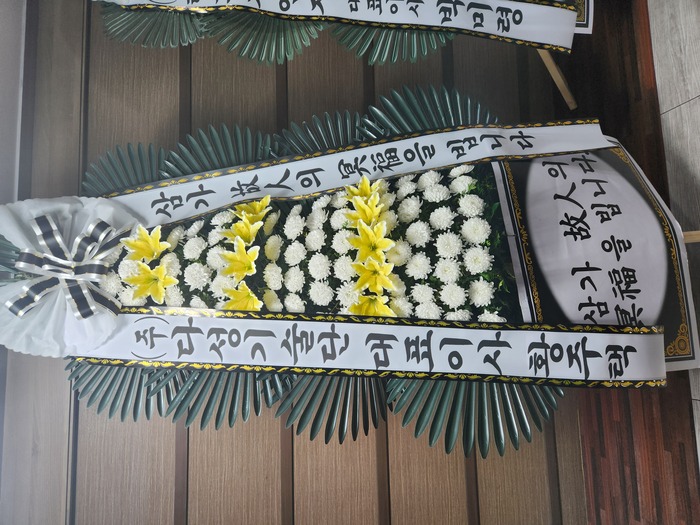 삼가 故人의 冥福을 빕니다
(주)다성기술단 대표이사 황주력
삼가 故人의
冥福을 빕니다
대표이사 박미령